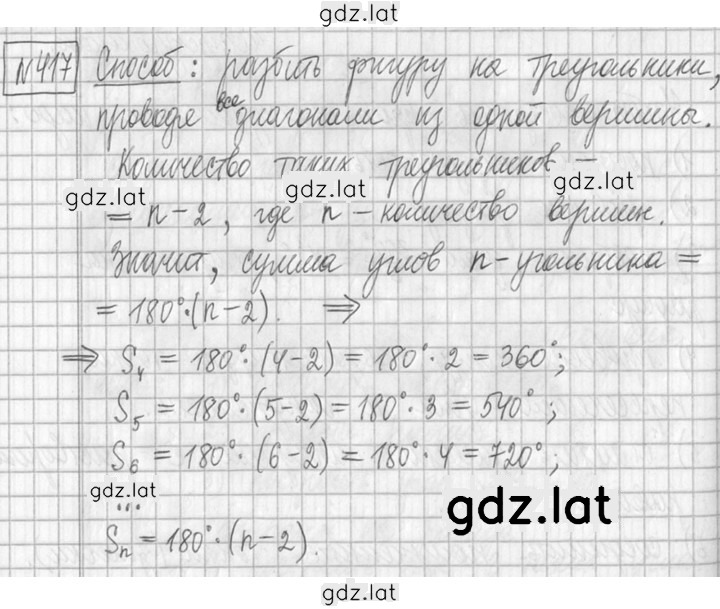 gdz.lat
№417 Способ: разбить фигуру на треугольники,
проводя все диагонали из одной вершины.
Количество таких треугольников –
gdz.lat gdz.lat gdz.lat
= n-2, где n – количество вершин.
Значит, сумма углов n-угольника =
= 180°·(n-2). ⇒
⇒ S₄ = 180°·(4-2) = 180°·2 = 360°;
S₅ = 180°·(5-2) = 180°·3 = 540°;
S₆ = 180°·(6-2) = 180°·4 = 720°;
gdz.lat gdz.lat
...
Sₙ = 180°·(n-2).
gdz.lat